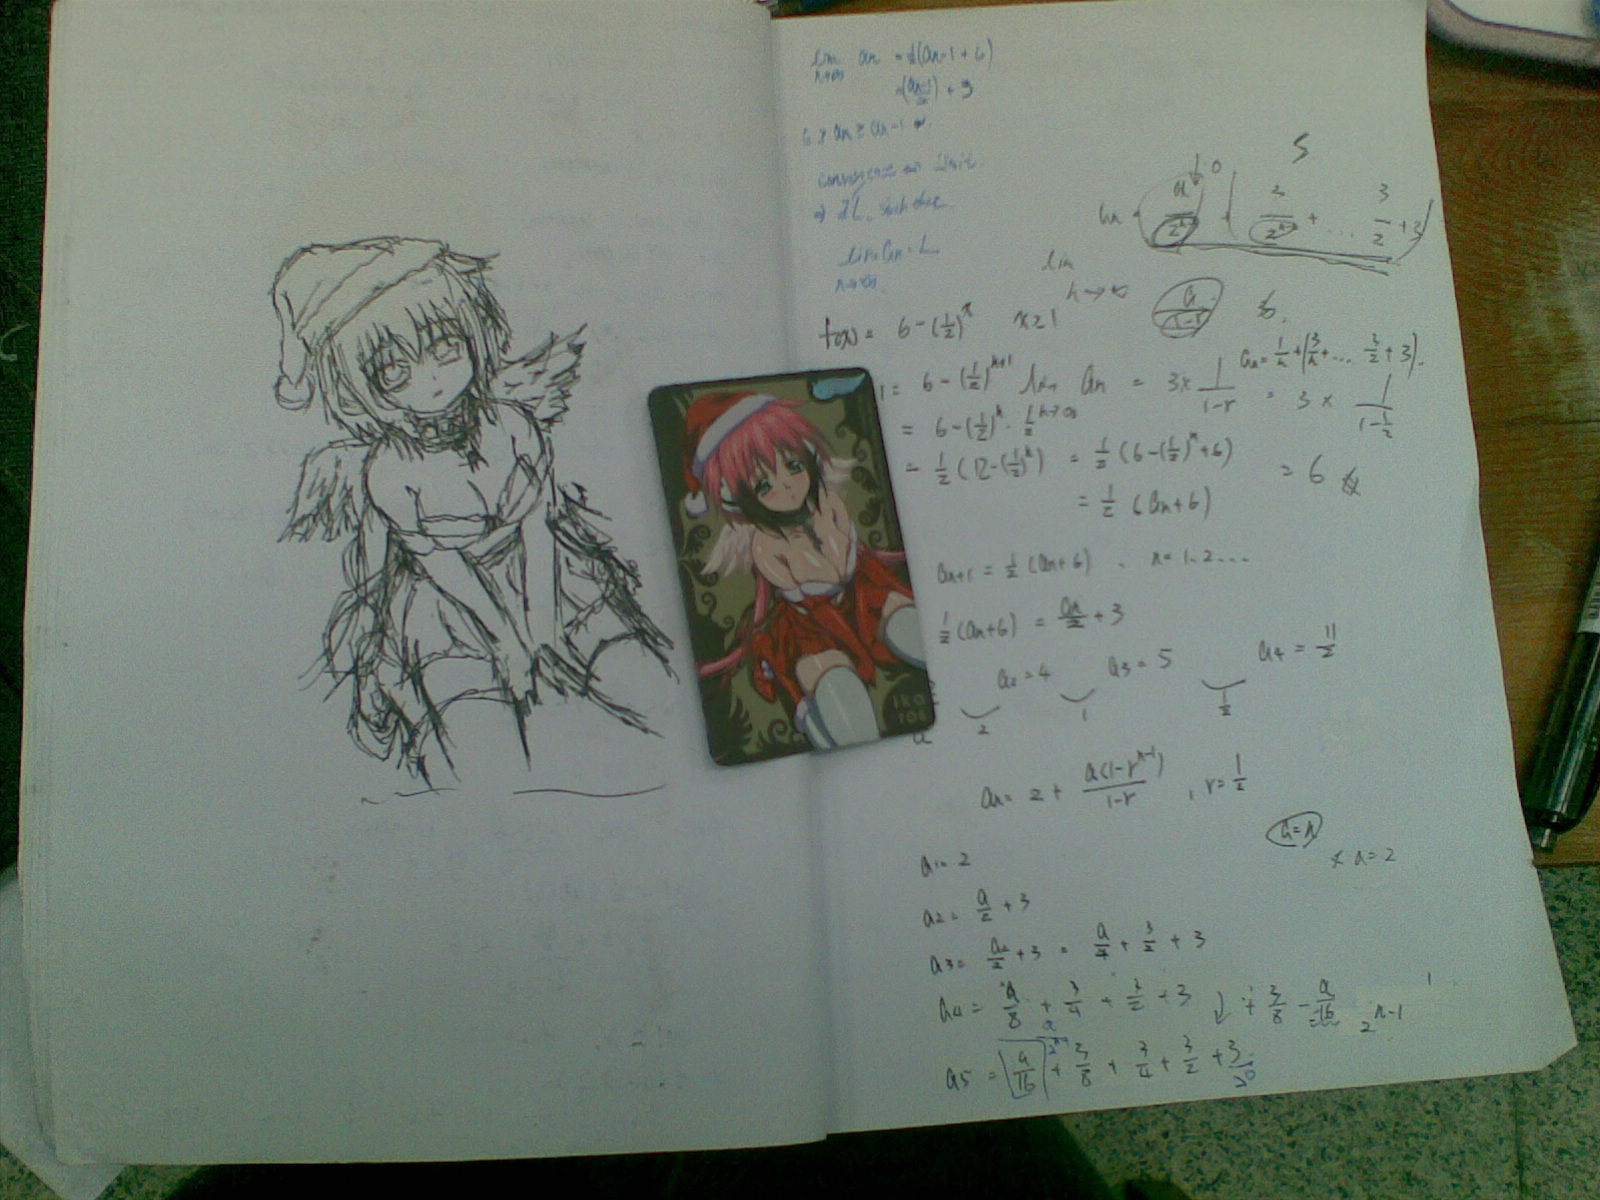 lim an = ½(an-1 + 6)
n→∞
= (an-1/2) + 3
6 ≥ an ≥ an-1
convergence limit.
⇒ ∃L, such that
lim an = L
n→∞
an = a/2ⁿ⁻¹ + ( 3/2 + ... 3/2 + 3 )
↓ 0
lim
n→∞
a/1-r
6.
f(x) = 6 - (1/2)^x x ≥ 1
an = 1/n + (3/n + ... 3/2 + 3).
1 = 6 - (1/2)^n+1
lim an = 3 × 1/1-r = 3 × 1/1-½
n→∞
= 6 - (1/2)^n · 1/2
= 1/2 (12 - (1/2)^n) = 1/2 (6 - (1/2)^n + 6)
= 6
= 1/2 (an + 6)
an+1 = 1/2 (an + 6) , n = 1. 2 ...
1/2 (an + 6) = an/2 + 3
a2 = 4 a3 = 5 a4 = 11/2
2 1 1/2
iKa
ros
an = 2 + a(1 - r^n-1)/1-r , r = 1/2
a1 = 2
a = 2
a2 = a/2 + 3
a3 = a2/2 + 3 = a/4 + 3/2 + 3
a4 = a/8 + 3/4 + 3/2 + 3 ↓ + 3/8 - a/16 2^n-1
a5 = a/16 + 3/8 + 3/4 + 3/2 + 3